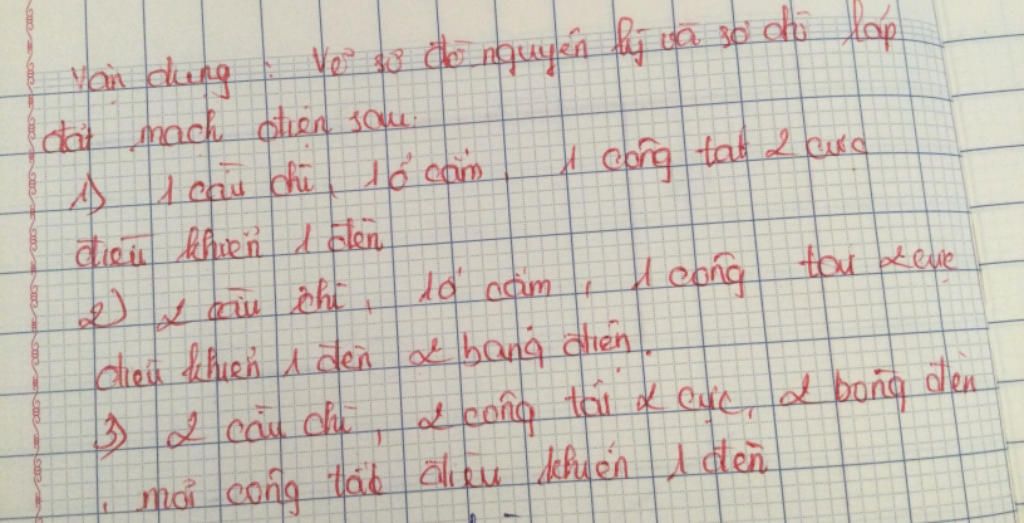 Vận dụng : Vẽ sơ đồ nguyên lý và sơ đồ lắp
đặt mạch điện sau.
1) 1 cầu chì, 1 ổ cắm, 1 công tắt 2 cực
điều khiển 1 đèn
2) 2 cầu chì, 1 ổ cắm, 1 công 2 cực
điều khiển 1 đèn 2 bang điện.
3) 2 cầu chì, 2 công 2 cực, 2 bong đèn
, mỗi công tắt điều khiển 1 đèn